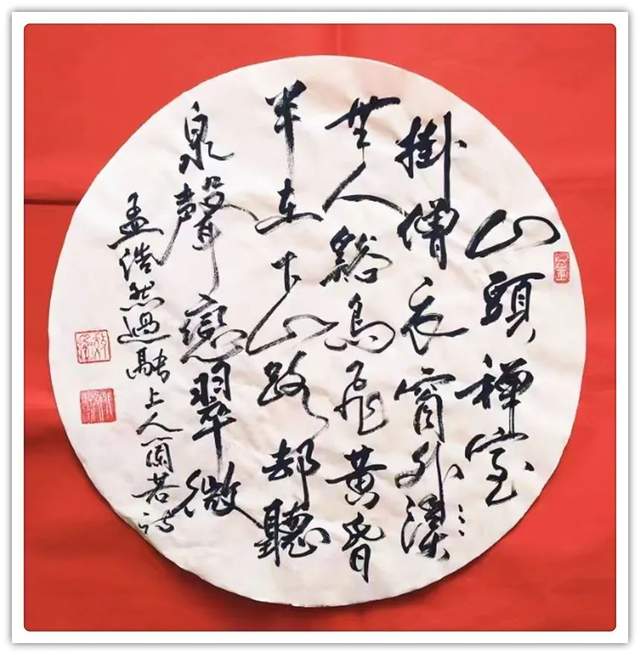 山頭禪室
掛僧衣窗外溪
無人谿鳥飛黃昏
半在下山路却聽
泉聲戀翠微
孟浩然過融上人蘭若詩